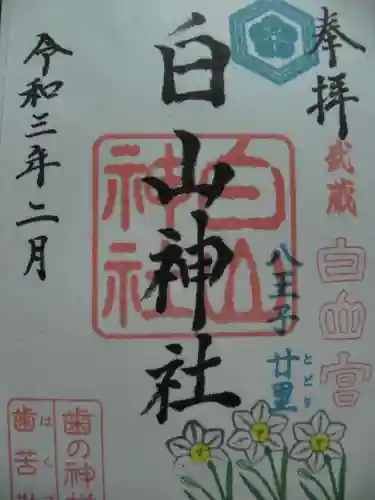 奉拝
武蔵
白山宮
八王子
廿里
とどり
白山神社
白山神社
令和三年二月
歯の神様
はく
歯苦